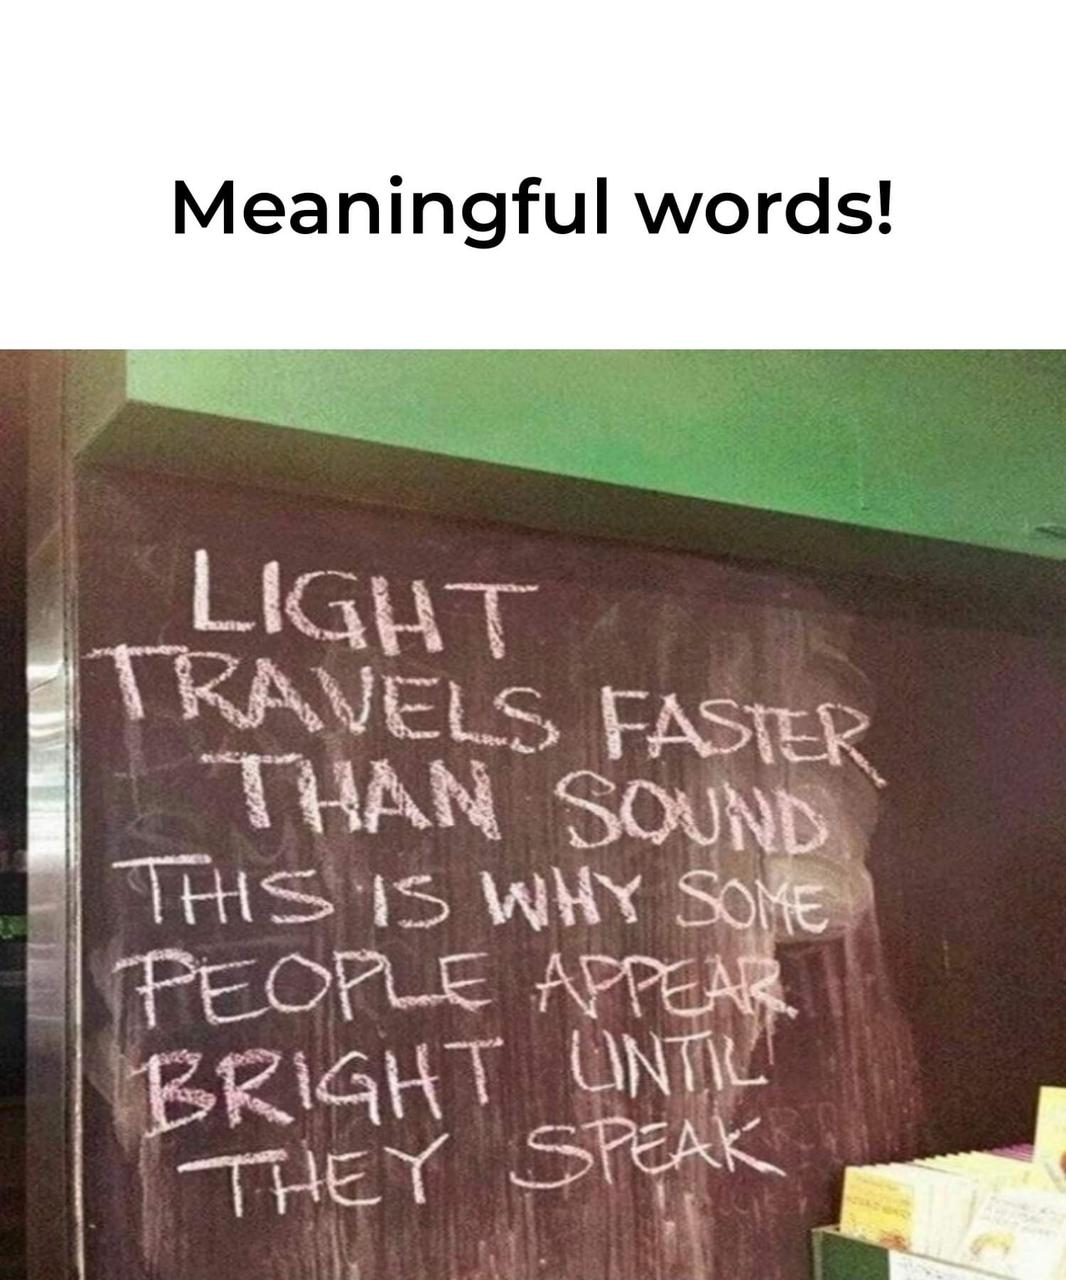 Meaningful words!
LIGHT
TRAVELS FASTER
THAN SOUND
THIS IS WHY SOME
PEOPLE APPEAR
BRIGHT UNTIL
THEY SPEAK